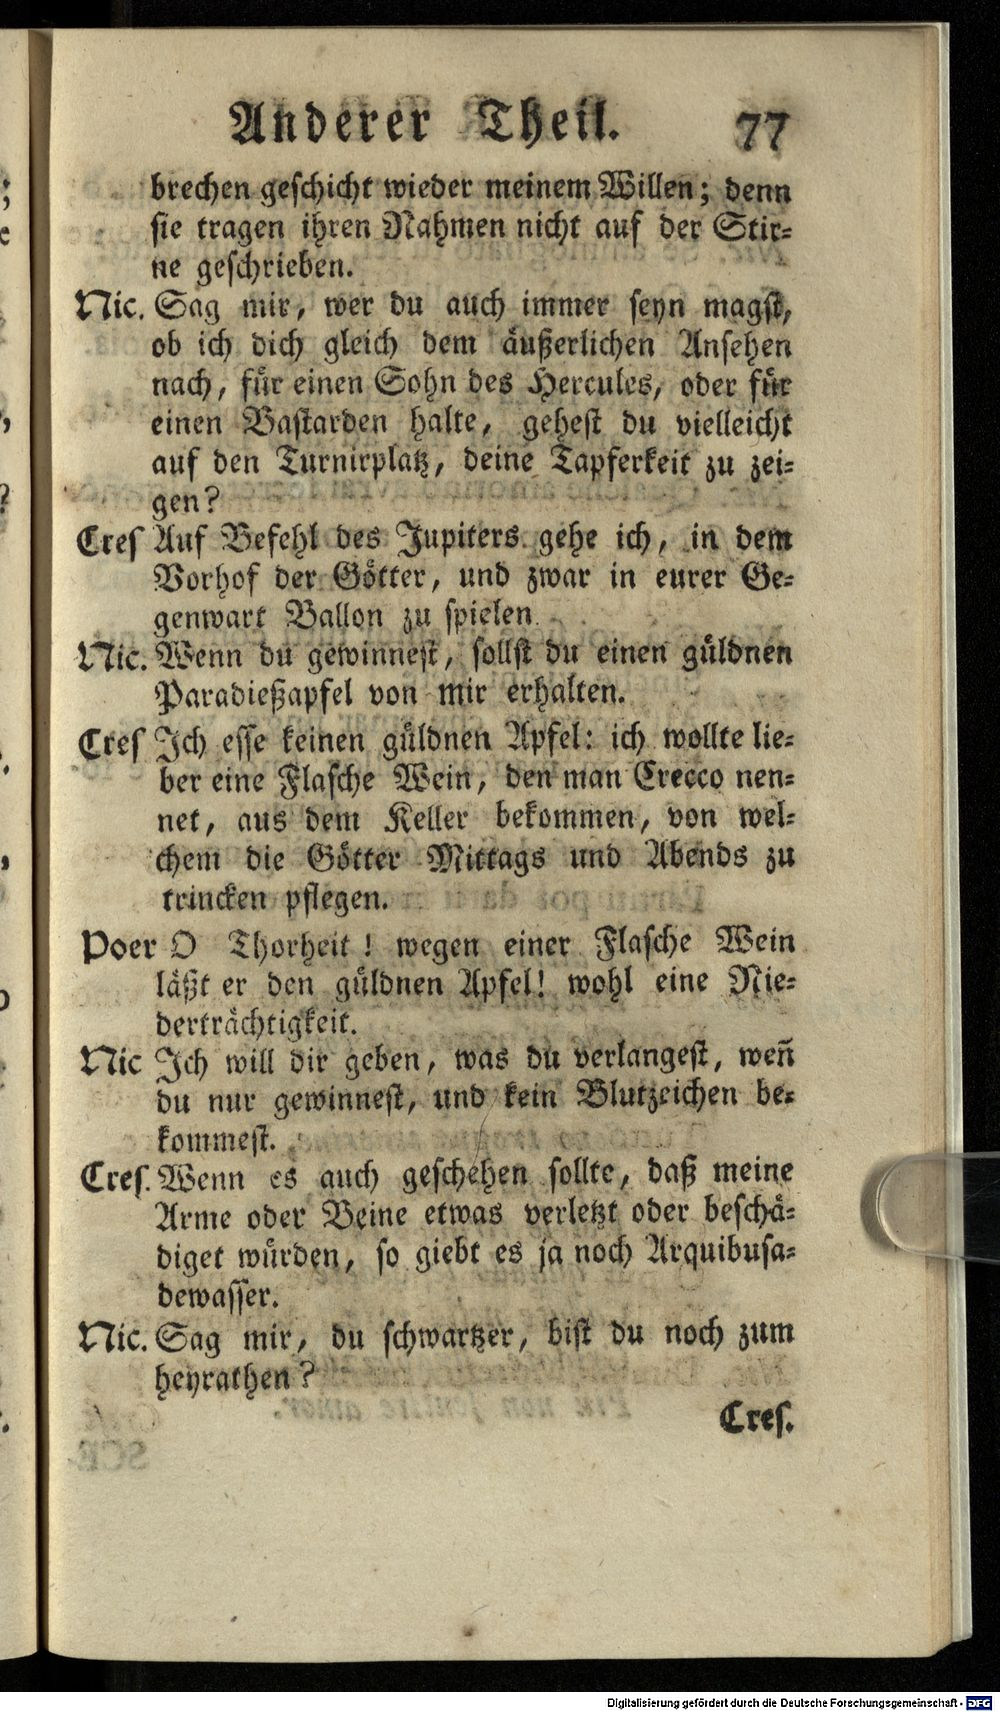 Anderer Theil. 77
brechen geschicht wieder meinem Willen; denn
sie tragen ihren Nahmen nicht auf der Stir=
ne geschrieben.
Nic. Sag mir, wer du auch immer seyn magst,
ob ich dich gleich dem äußerlichen Ansehen
nach, für einen Sohn des Hercules, oder für
einen Bastarden halte, gehest du vielleicht
auf den Turnirplatz, deine Tapferkeit zu zei=
gen?
Cres Auf Befehl des Jupiters gehe ich, in dem
Vorhof der Götter, und zwar in eurer Ge=
genwart Ballon zu spielen.
Nic. Wenn du gewinnest, sollst du einen güldnen
Paradießapfel von mir erhalten.
Cres Ich esse keinen güldnen Apfel: ich wollte lie=
ber eine Flasche Wein, den man Crecco nen=
net, aus dem Keller bekommen, von wel=
chem die Götter Mittags und Abends zu
trincken pflegen.
Poer O Thorheit! wegen einer Flasche Wein
läßt er den güldnen Apfel! wohl eine Nie=
derträchtigkeit.
Nic Ich will dir geben, was du verlangest, weñ
du nur gewinnest, und kein Blutzeichen be=
kommest.
Cres. Wenn es auch geschehen sollte, daß meine
Arme oder Beine etwas verletzt oder beschä=
diget würden, so giebt es ja noch Arquibusa=
dewasser.
Nic. Sag mir, du schwartzer, bist du noch zum
heyrathen?
Cres.
Digitalisierung gefördert durch die Deutsche Forschungsgemeinschaft - DFG